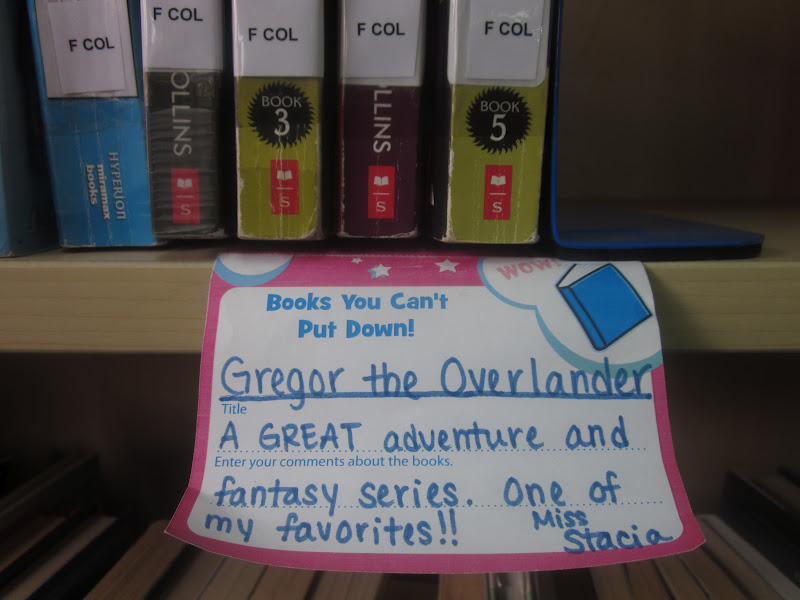 F COL
F COL
F COL
F COL
F COL
HYPERION
miramax
books
OLLINS
S
BOOK
3
S
OLLINS
S
BOOK
5
S
WOW!
Books You Can't
Put Down!
Gregor the Overlander
Title
A GREAT adventure and
Enter your comments about the books.
fantasy series. One of
my favorites!!
Miss
Stacia